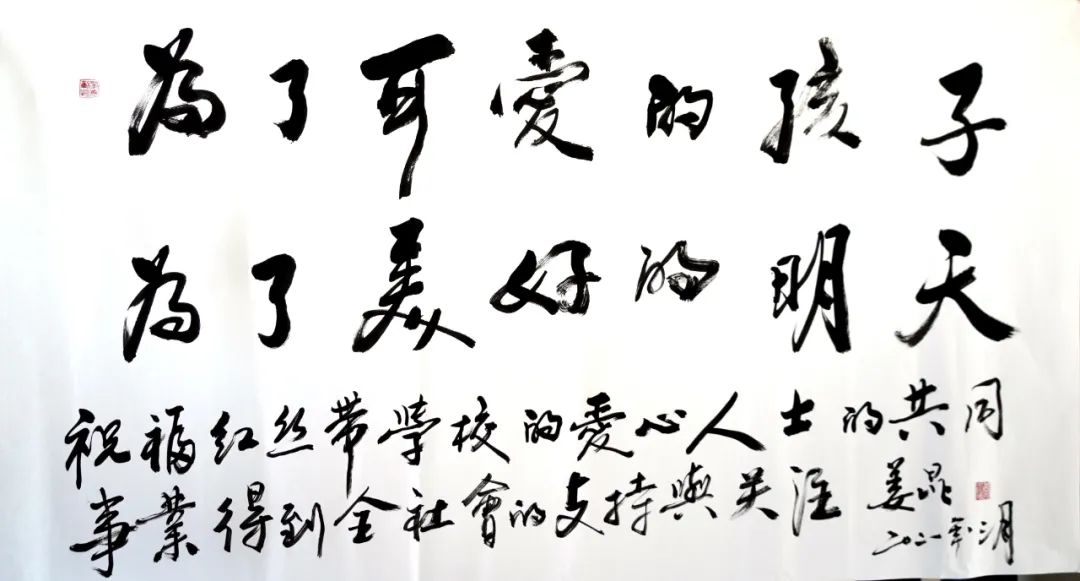 為了可愛的孩子
為了美好的明天
祝福红丝带學校的愛心人士的共同
事業得到全社會的支持與关注
姜昆
二〇二一年三月